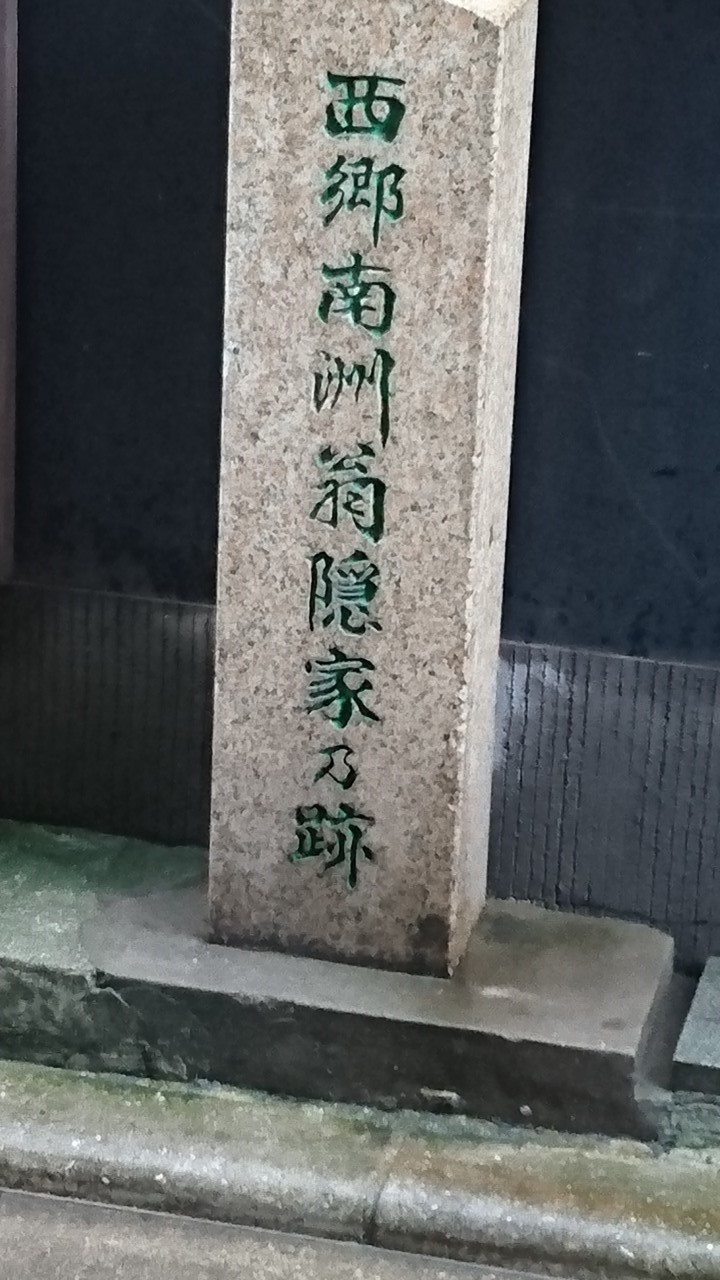 西郷南洲翁隠家乃跡